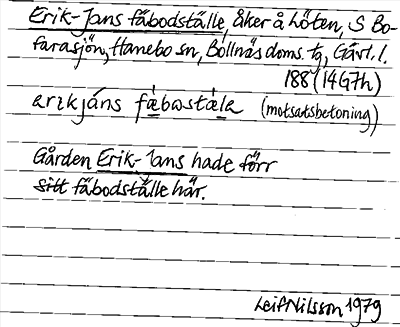 Erik-Jans fäbodställe, åker å Löten, S Bo-
farasjön, Hanebo sn, Bollnäs doms. tg, Gävl. l.
188 (14G7h)
erikjáns fä̀bostä̀le (motsatsbetoning)
Gården Erik-Jans hade förr
sitt fäbodställe här.
Leif Nilsson 1979